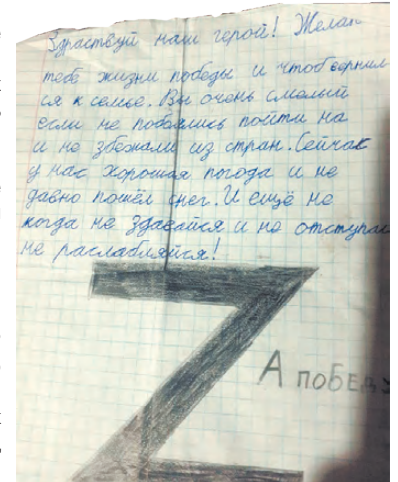 Здраствуй наш герой! Желаю
тебе жизни победы и чтоб вернил
ся к семье. Вы очень смелый
если не побоялись пойти на
и не збежали из стран. Сейчас
у нас хорошая погода и не
давно пошёл снег. И ещё не
когда не здавайтся и не отступай
не раслабляйся!
Z
А ПОБЕДУ